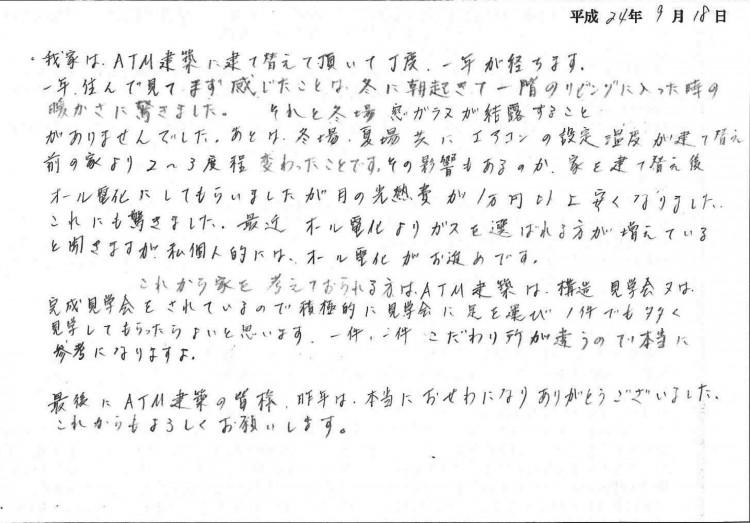 平成 24年 9月 18日
・我家は、ATM建築に建て替えて頂いて丁度、一年が経ちます。
一年、住んで見てまず感じたことは、冬に朝起きて一階のリビングに入った時の
暖かさに驚きました。 それと冬場窓ガラスが結露すること
がありませんでした。あとは、冬場、夏場共にエアコンの設定温度が建て替え
前の家より2〜3度程変わったことです。その影響もあるのか、家を建て替え後
オール電化にしてもらいましたが月の光熱費が1万円以上安くなりました。
これにも驚きました。最近オール電化よりガスを選ばれる方が増えている
と聞きますが、私個人的には、オール電化がお進めです。
これから家を考えておられる方は、ATM建築は、構造見学会又は、
完成見学会をされているので積極的に見学会に足を運び1件でも多く
見学してもらったらよいと思います。一件、一件こだわり所が違うので本当に
参考になりますよ。
最後にATM建築の皆様、昨年は、本当におせわになりありがとうございました。
これからもよろしくお願いします。